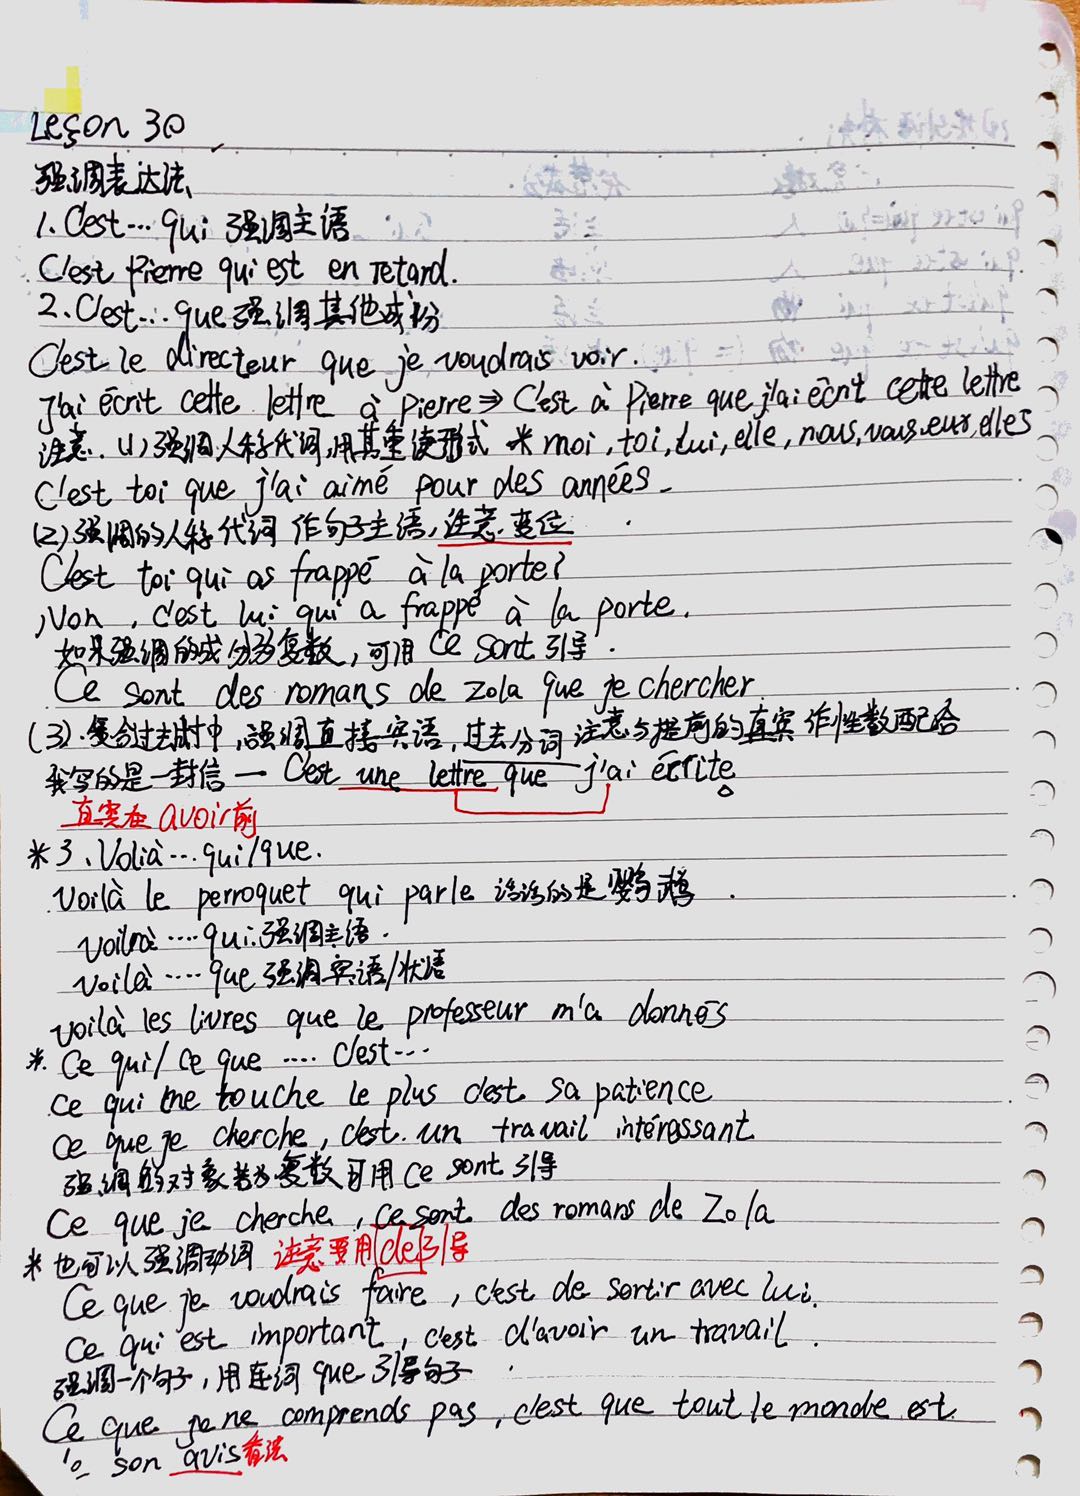 Leçon 30
强调表达法
1. C'est... qui 强调主语
C'est Pierre qui est en retard.
2. C'est... que 强调其他成份
C'est le directeur que je voudrais voir.
J'ai écrit cette lettre à Pierre ⇒ C'est à Pierre que j'ai écrit cette lettre
注意. (1) 强调人称代词,用其重读形式 * moi, toi, lui, elle, nous, vous, eux, elles
C'est toi que j'ai aimé pour des années.
(2) 强调的人称代词 作句子主语,注意变位
C'est toi qui as frappé à la porte?
Non, c'est lui qui a frappé à la porte.
如果强调的成分为复数,可用 ce sont 引导.
Ce sont des romans de Zola que je chercher.
(3). 复合过去时中,强调直接宾语,过去分词 注意与提前的直宾 作性数配合
我写的是一封信 — C'est une lettre que j'ai écrite.
直宾在 avoir前
* 3. Volià... qui/que.
Voilà le perroquet qui parle 说话的是鹦鹉.
voilà .... qui 强调主语.
voilà .... que 强调宾语/状语
voilà les livres que le professeur m'a donnés
* Ce qui/ ce que .... c'est...
Ce qui me touche le plus c'est sa patience
Ce que je cherche, c'est un travail intéressant
强调的对象若为复数可用 ce sont 引导
Ce que je cherche, ce sont des romans de Zola
* 也可以强调动词 注意要用de引导
Ce que je voudrais faire, c'est de sortir avec lui.
Ce qui est important, c'est d'avoir un travail.
强调一个句子,用连词 que 引导句子
Ce que je ne comprends pas, c'est que tout le monde est
son avis 看法